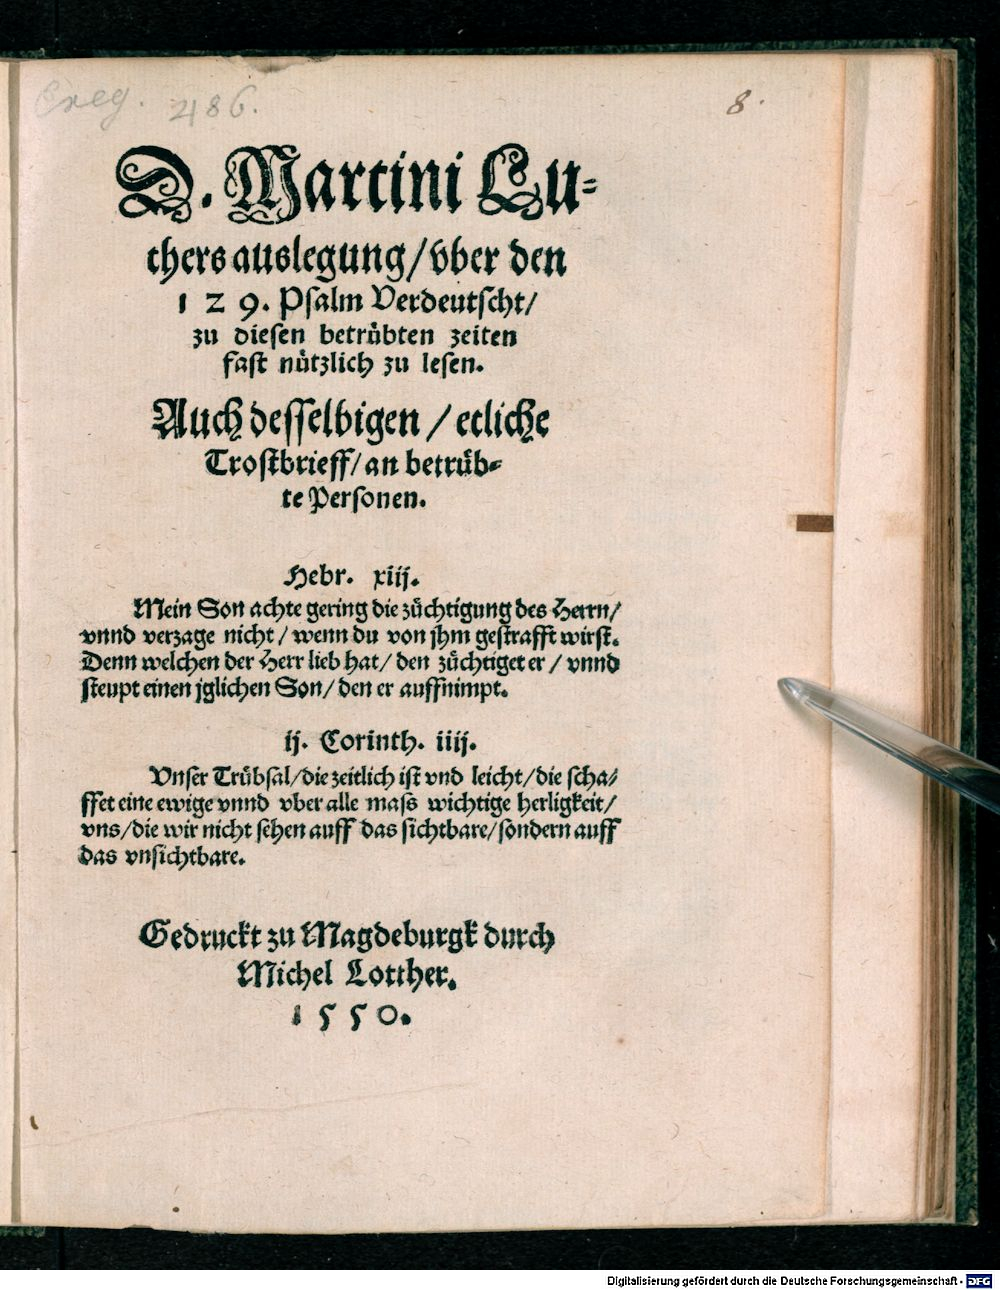 Exeg. 486.
8.
D. Martini Lu-
thers auslegung/ vber den
129. Psalm Verdeutscht/
zu diesen betrübten zeiten
fast nützlich zu lesen.
Auch desselbigen / etliche
Trostbrieff/ an betrüb-
te Personen.
Hebr. xiij.
Mein Son achte gering die züchtigung des Herrn/
vnnd verzage nicht / wenn du von jhm gestrafft wirst.
Denn welchen der Herr lieb hat/ den züchtiget er / vnnd
steupt einen jglichen Son/ den er auffnimpt.
ij. Corinth. iiij.
Vnser Trübsal/ die zeitlich ist vnd leicht/ die scha-
ffet eine ewige vnnd vber alle mass wichtige herligkeit/
vns/ die wir nicht sehen auff das sichtbare/ sondern auff
das vnsichtbare.
Gedruckt zu Magdeburgk durch
Michel Lotther.
1550.
Digitalisierung gefördert durch die Deutsche Forschungsgemeinschaft - DFG